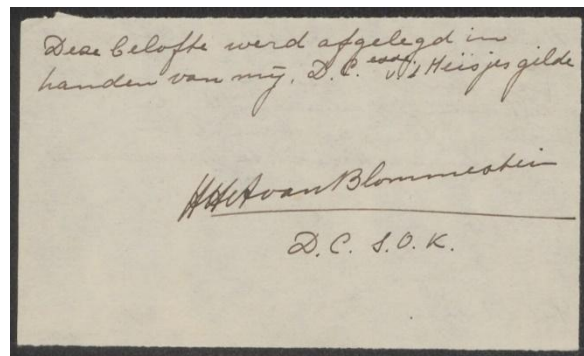 Deze belofte werd afgelegd in
handen van mij, D.C. v.d Meisjesgilde
van Blommestein
D.C. S.O.K.